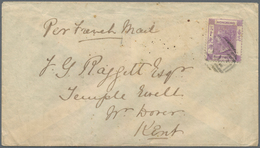 Per French Mail
F. G. Raggett Esqre
Temple Ewell
Nr Dover
Kent